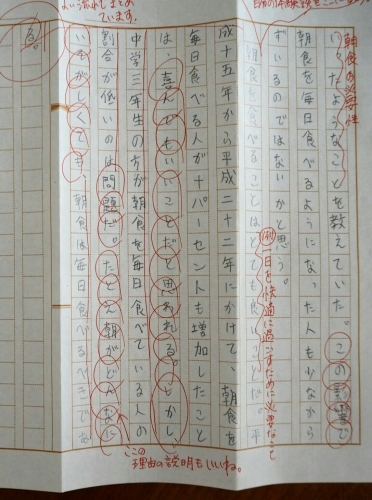 朝食の必要性
いったようなことを教えていた。この影響で
朝食を毎日食べるようになった人も少なから
ずいるのではないかと思う。
例 一日を快適に過ごすために必要なこと
朝食を食べることはとても良いことだ。平
成十五年から平成二十二年にかけて、朝食を
毎日食べる人が十パーセントも増加したこと
は、喜んでもいいことだと思われる。しかし、
中学三年生の方が朝食を毎日食べている人の
割合が低いのは問題だ。たとえ朝がどんなに
ここの
理由の説明もいいね。
いそがしくても、朝食は毎日食べるべきであ
る。
よい流れでまとめ
ています。